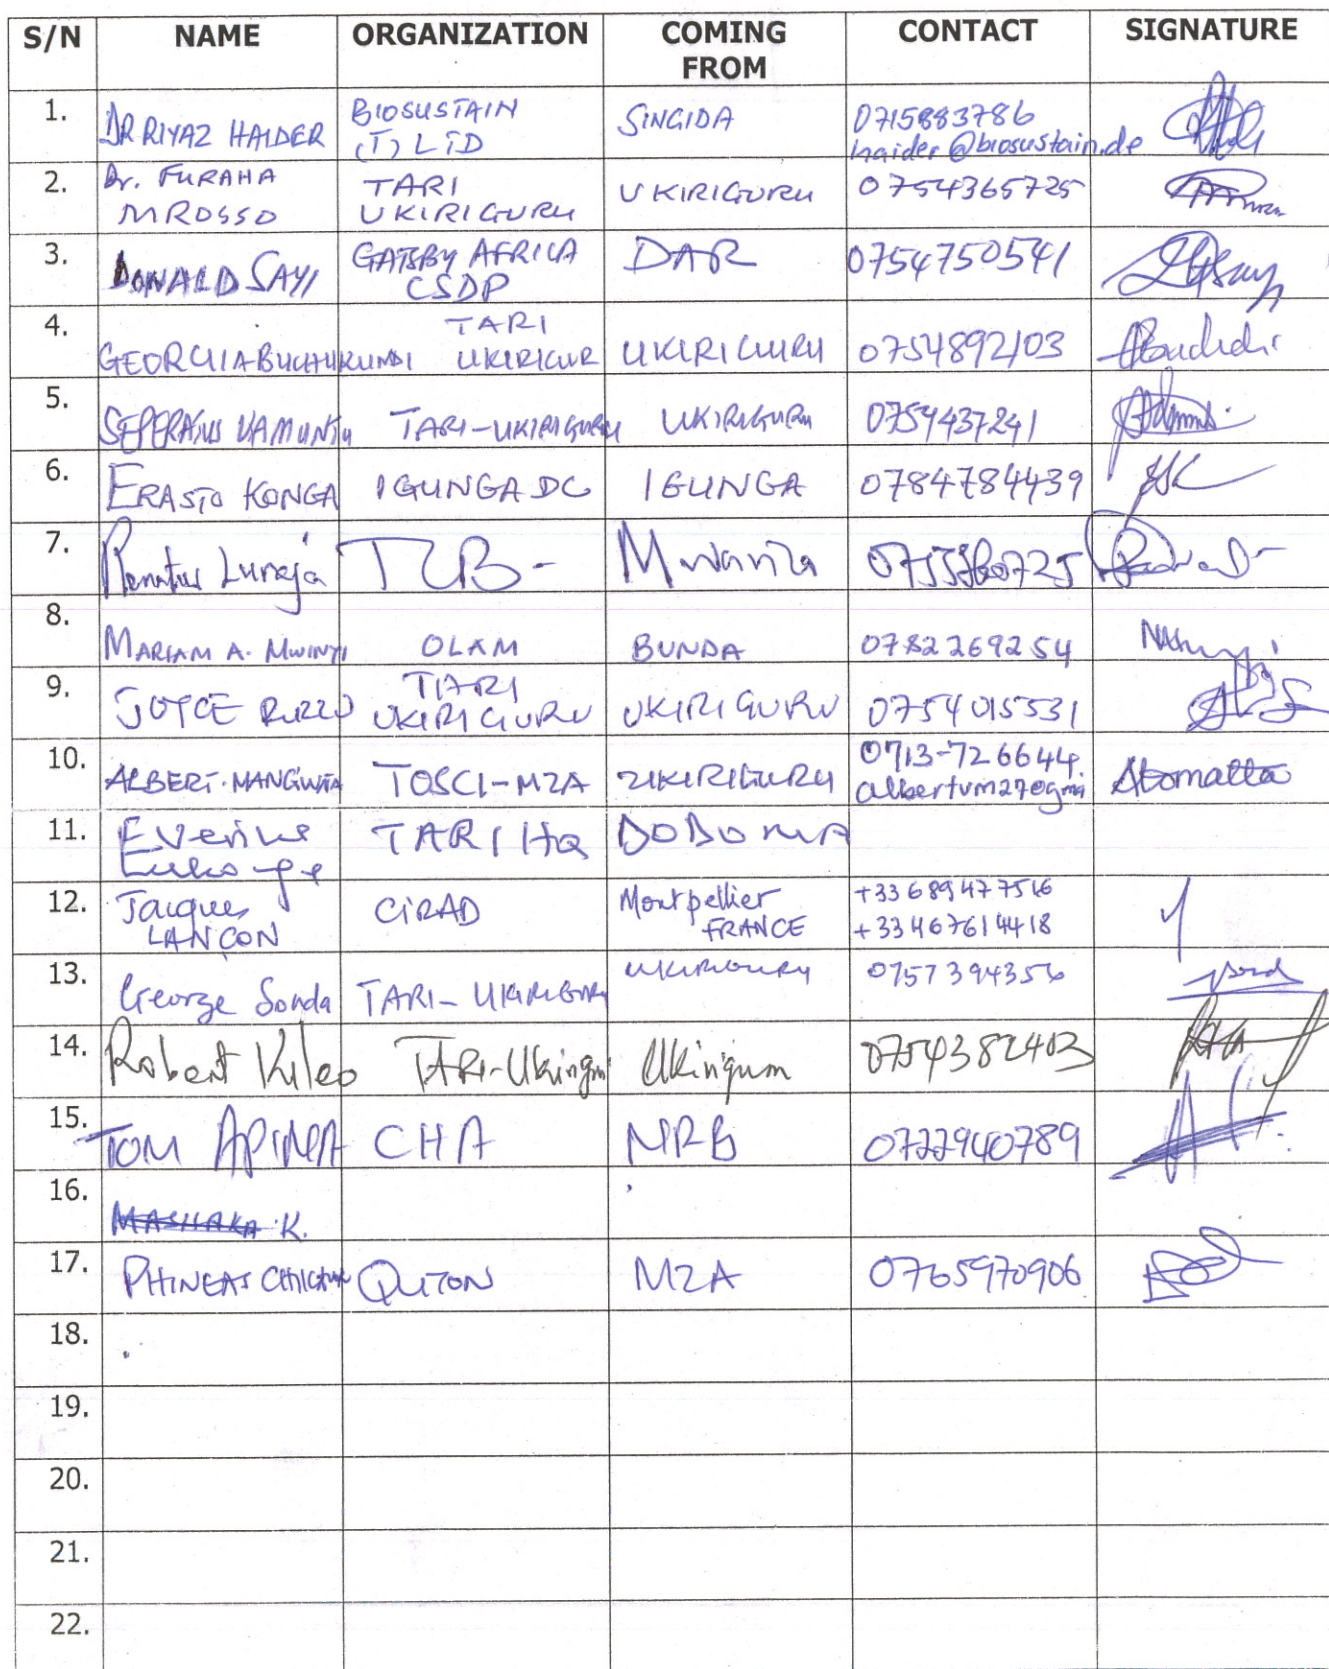 S/N NAME ORGANIZATION COMING FROM CONTACT SIGNATURE
1. DR RIYAZ HAIDER BIOSUSTAIN (T) LTD SINGIDA 0715883786 haider@biosustain.de
2. Dr. FURAHA MROSSO TARI UKIRIGURU UKIRIGURU 0754365725
3. DONALD SAYI GATSBY AFRICA CSDP DAR 0754750541
4. GEORGIA BUCHUKUNDI TARI UKIRIGUR UKIRIGURU 0754892103
5. TARI-UKIRIGURU UKIRIGURU 0754437241
6. ERASTO KONGA IGUNGA DC IGUNGA 0784784439
7. Renatus Luneja TCB- Mwanza
8. MARIAM A. MWINYI OLAM BUNDA 0782269254
9. JOYCE TARI UKIRIGURU UKIRIGURU 0754015531
10. ALBERT. TOSCI-MZA UKIRIGURU 0713-726644.
11. Everine TARI HQ DODOMA
12. Jacques LANÇON CIRAD Montpellier FRANCE +33 689477516 +33467614418
13. George Sonda TARI-UKIRIGURU UKIRIGURU 0757394356
14. Robert Kileo TARI-Ukirigu Ukiriguru 0754382403
15. TOM APINA CHA NRB 0722940789
16. MASHAKA K.
17. PHINEAS QUTON MZA 0765970906
18.
19.
20.
21.
22.